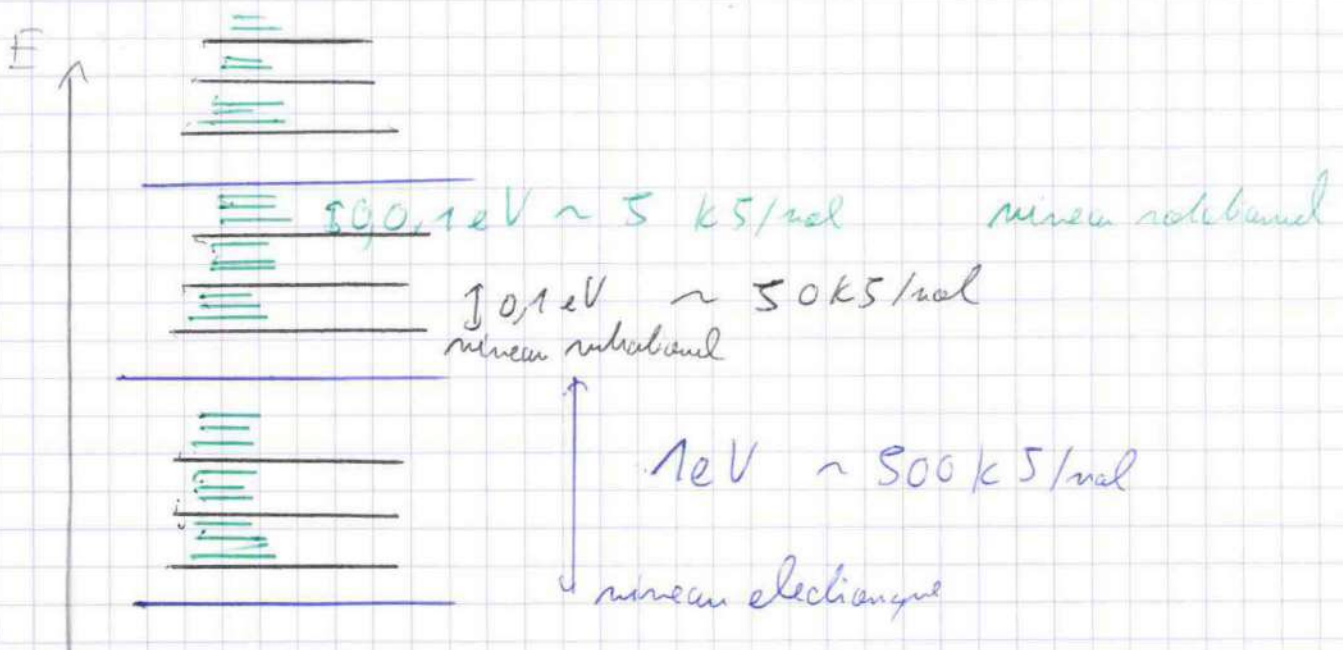 E
0,0,1 eV ~ 5 kJ/mol niveau rotationnel
0,1 eV ~ 50 kJ/mol
niveau vibrationnel
1 eV ~ 500 kJ/mol
niveau electronique